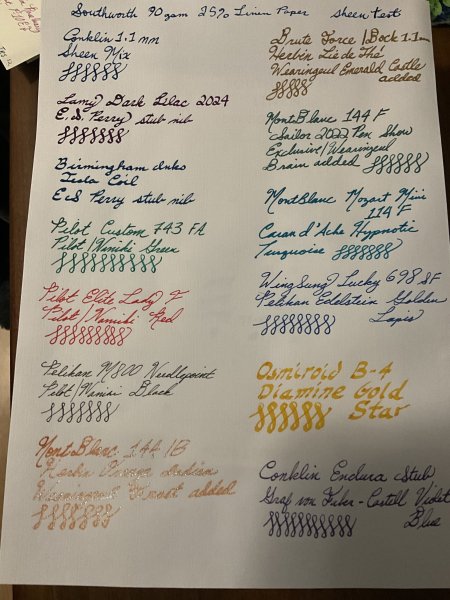 Southworth 90 gsm 25% Linen Paper sheen test
Conklin 1.1 mm
Sheen Mix
Lamy Dark Lilac 2024
E.S. Perry stub nib
Birmingham Inks
Tesla Coil
E.S Perry stub nib
Pilot Custom 743 FA
Pilot/Namiki Green
Pilot Elite Lady F
Pilot/Namiki Red
Pelikan M800 Needlepoint
Pilot/Namiki Black
MontBlanc 144 IB
added
Brute Force/Bock 1.1mm
Herbin Lie de Thé
Wearingeul Emerald Castle
added
MontBlanc 144 F
Sailor 2022 Pen Show
Exclusive/Wearingeul
Brain added
MontBlanc Mozart Mini
114 F
Caran d'Ache Hypnotic
Turquoise
WingSung Lucky 698 SF
Pelikan Edelstein Golden
Lapis
Osmiroid B-4
Diamine Gold
Star
Conklin Endura Stub
Graf von Faber-Castell Violet
Blue